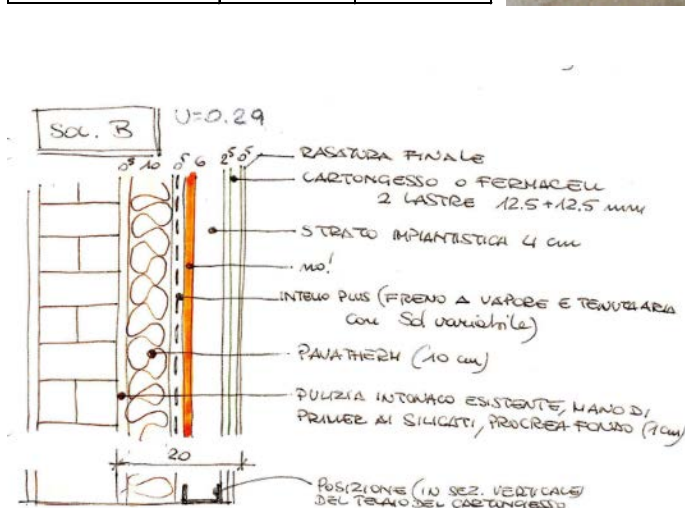 SOL. B
U=0.29
0⁵ 10 0⁵ 6 2⁵ 0⁵
RASATURA FINALE
CARTONGESSO O FERMACELL
2 LASTRE 12.5+12.5 mm
STRATO IMPIANTISTICA 4 cm
no!
INTELLO PLUS (FRENO A VAPORE E TENUTA ARIA
con Sd variabile)
PAVATHERM (10 cm)
PULIZIA INTONACO ESISTENTE, MANO DI
PRIMER AI SILICATI, PROCREA FONDO (1cm)
20
POSIZIONE (IN SEZ. VERTICALE)
DEL TELAIO DEL CARTONGESSO